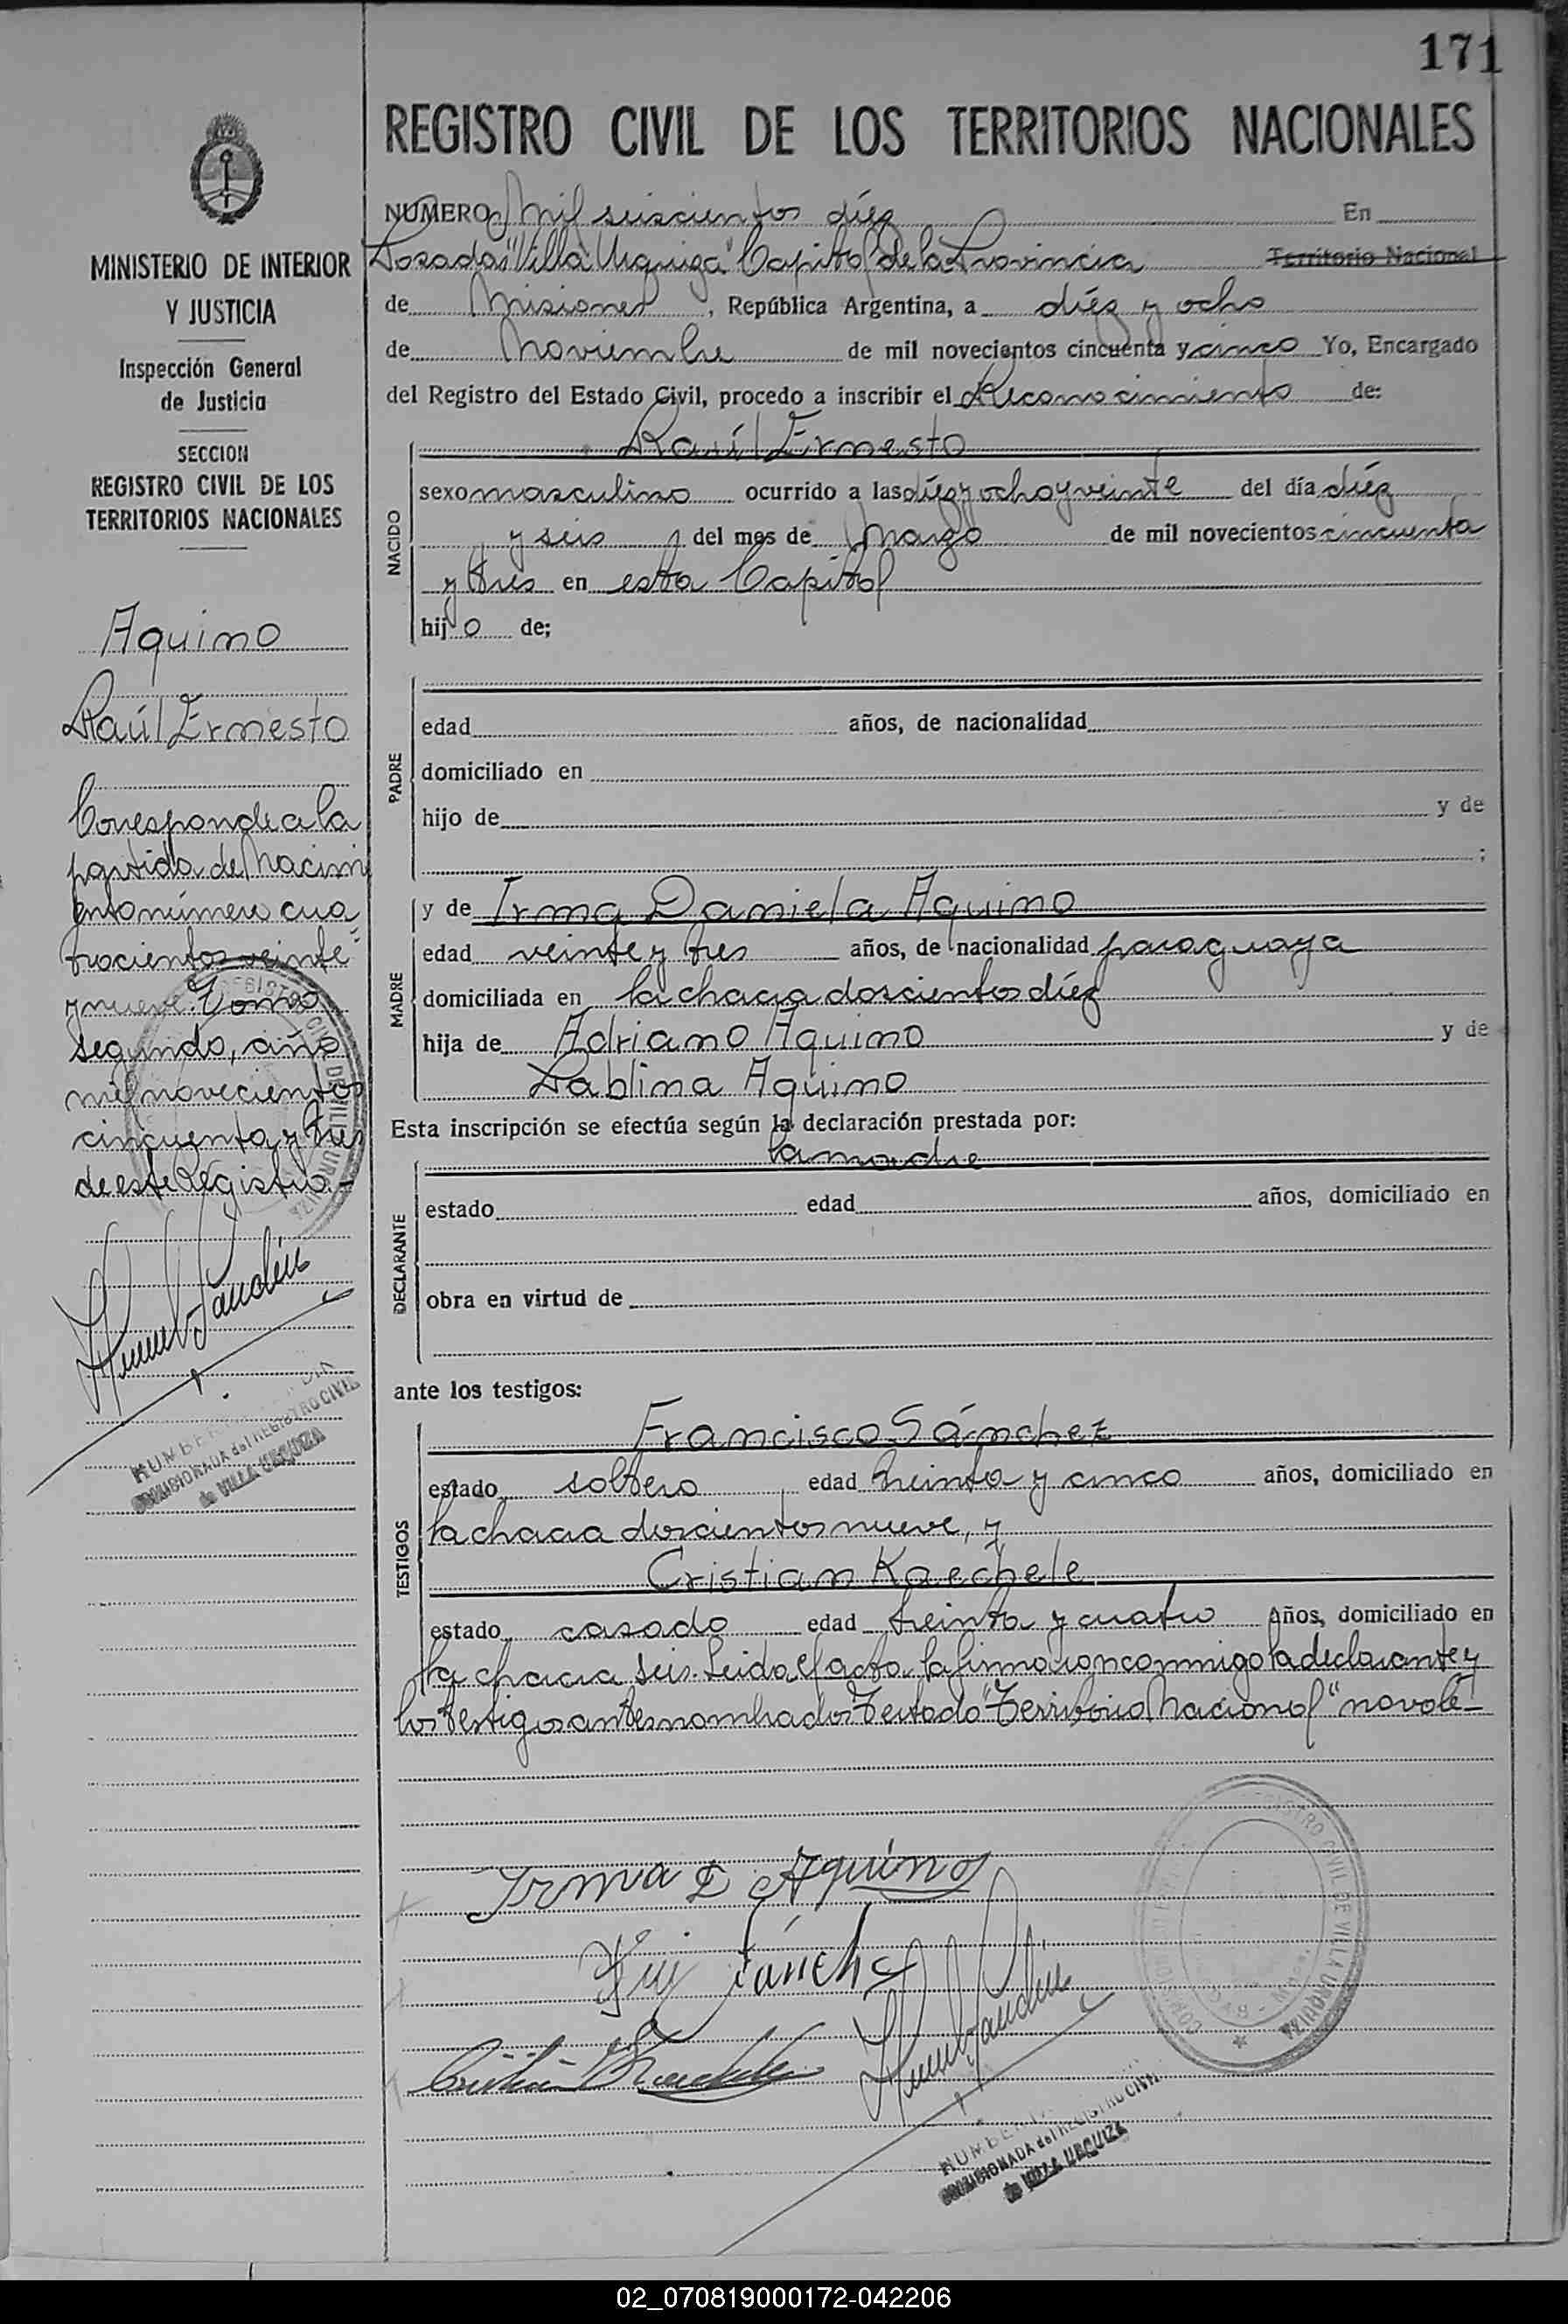 171
REGISTRO CIVIL DE LOS TERRITORIOS NACIONALES
MINISTERIO DE INTERIOR
Y JUSTICIA
Inspección General
de Justicia
SECCION
REGISTRO CIVIL DE LOS
TERRITORIOS NACIONALES
Aquino
Raúl Ernesto
Corresponde a la
partida de Nacimi
ento número cua
trocientos veinte
y nueve. Tomo
segundo, año
mil novecientos
cincuenta y tres
de este Registro.-
HUMBE
COMISIONADA del REGISTRO CIVIL
de VILLA URQUIZA
NUMERO Mil seiscientos diéz En
Posadas "Villa Urquiza" Capital de la Provincia Territorio Nacional
de Misiones, República Argentina, a diéz y ocho
de Noviembre de mil novecientos cincuenta y cinco Yo, Encargado
del Registro del Estado Civil, procedo a inscribir el Reconocimiento de:
NACIDO
Raúl Ernesto
sexo masculino ocurrido a las diéz y ocho y veinte del día diéz
y seis del mes de Marzo de mil novecientos cincuenta
y tres en esta Capital
hijo de;
PADRE
edad años, de nacionalidad
domiciliado en
hijo de y de
;
MADRE
y de Irma Daniela Aquino
edad veinte y tres años, de nacionalidad paraguaya
domiciliada en la chacra doscientos diéz
hija de Adriano Aquino y de
Pablina Aquino
Esta inscripción se efectúa según la declaración prestada por:
DECLARANTE
la madre
estado edad años, domiciliado en
obra en virtud de
ante los testigos:
TESTIGOS
Francisco Sánchez
estado soltero edad treinta y cinco años, domiciliado en
la chacra doscientos nueve, y
Cristian Kaechele
estado casado edad treinta y cuatro años, domiciliado en
la chacra seis. Leida el acta la firma con conmigo la declarante y
los testigos antes nombrados Testado "Territorio Nacional" no vale-
Irma D Aquino
Sánchez
Cristian Kaechele
REGISTRO CIVIL DE VILLA URQUIZA
HUMBE
COMISIONADA del REGISTRO CIVIL
de VILLA URQUIZA
02_070819000172-042206